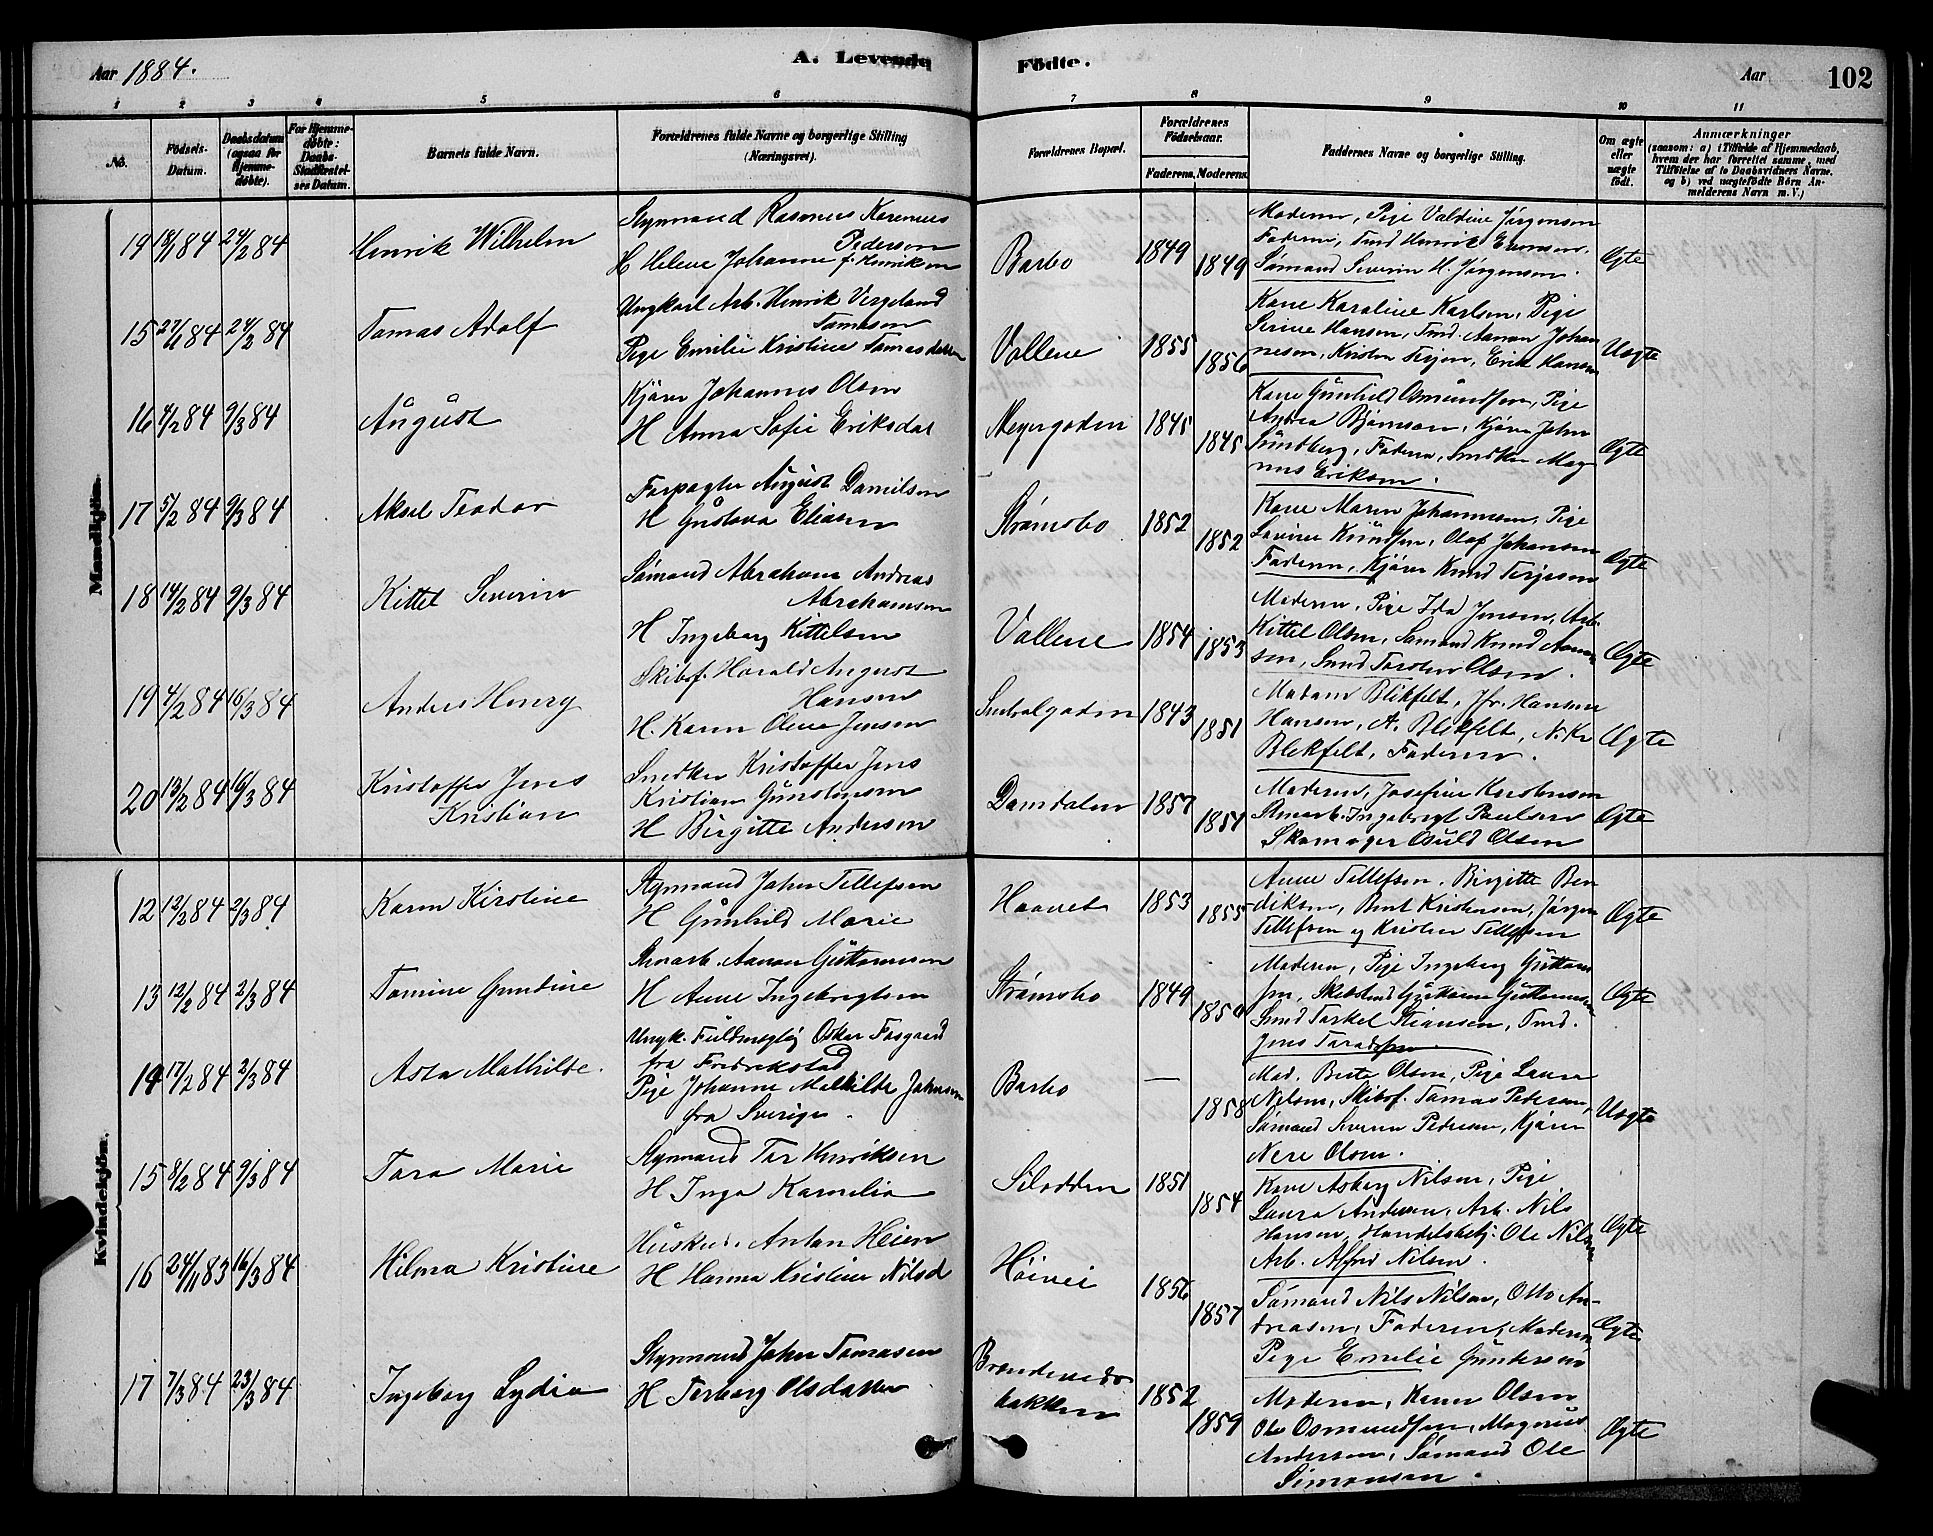 Aar 1884.
A. Levende
Födte.
Aar
102
1 2 3 4 5 6 7 8 9 10 11
No.
Födsels-Datum.
Daabsdatum (ogsaa for Hjemme-döbte).
For Hjemme-döbte: Daabs-Stadfæstel-ses Datum.
Barnets fulde Navn.
Forældrenes fulde Navne og borgerlige Stilling (Næringsvei).
Forældrenes Bopæl.
Forældrenes Födselsaar.
Faderens. Moderens.
Faddernes Navne og borgerlige Stilling.
Om ægte eller uægte födt.
Anmærkninger
(saasom: a) i Tilfælde af Hjemmedaab,
hvem der har forrettet samme, med
Tilföielse af to Daabsvidners Navne,
og b) ved uægtefödte Börn An-
melderens Navn m. V.)
Mandkjön.
24/2 84
Henrik Wilhelm
Styrmand Rasmus
Pedersen
H Helene Johanne f. Henriksen
Barbo
1849
1849
Moderen, Pige Valdine Jörgensen
Faderen, Tmd Henrik
Sömand Severin H. Jörgensen.
Ægte
15
24/2 84
Tomas Adolf
Ungkarl Arb. Henrik Vergeland
Tomasen
Pige Emilie Kristine Tomasdatter
Vollene
1855
1856
Kone Karoline Karlsen, Pige
Serine Hansen, Tmd. Aanon Johan
nesen, Kristen Terjen, Erik Hansen
Uægte
16
9/3 84
August
Kjörer Johannes Olsen
H Anna Sofie Eriksdat
Meyergaden
1845
1845
Kone Gunhild Osmundsen, Pige
Andrea Björnsen, Kjörer John
Sundberg, Faderen, Snedker Mag
nus Eriksen.
Ægte
17
5/2 84
9/3 84
Aksel Teodor
Forpagter August Danielsen
H Gustava Eliasen
Strömsbo
1852
1852
Kone Maren Johannesen, Pige
Lovise Knudsen, Olaf Johansen
Faderen, Kjörer Knud Terjesen
Ægte
18
14/2 84
9/3 84
Kittel Severin
Sömand Abraham Andreas
Abrahamsen
H Ingeborg Kittelsen
Vollene
1854
1853
Moderen, Pige Ida Jensen, Arb.
Kittel Olsen, Sömand Knud Aanon
sen, Smed Torsten Olsen.
Ægte
19
4/2 84
16/3 84
Anders Henry
Skibsf. Harald August
Hansen
H. Karen Oline Jensen
1843
1851
Madam Blikfelt, Jfr. Hansen
Hansen, A. Blikfelt, N. Kr
Blekfelt, Faderen.
Ægte
20
13/2 84
16/3 84
Kristoffer Jens
Kristian
Snedker Kristoffer Jens
Kristian Gunstensen
H Birgitte Andersen
Damdalen
1857
1857
Moderen, Josefine Kristensen
Stenarb. Ingebrigt Paulsen
Skomager Osuld Olsen
Ægte
Kvindekjön.
12
12/2 84
2/3 84
Karen Kirstine
Styrmand John Tellefsen
H Gunhild Marie
Haavet
1853
1855
Anne Tellefsen, Birgitte Ben
diksen, Bent Kristensen, Jörgen
Tellefsen og Kristen Tellefsen
Ægte
13
12/2 84
2/3 84
Tomine Gundine
Stenarb. Aanon Guttormsen
H Anne Ingebrigtsen
Strömsbo
1849
1850
Moderen, Pige Ingeborg Guttorm
sen, Skibstmd Guttormsen
Smed Torkel Stiansen, Tmd.
Jens Taraldsen
Ægte
14
17/2 84
2/3 84
Asta Mathilde.
Ungk. Fuldmægtig Oskar Fosgaard
fra Fredrikstad
Pige Johanne Mathilde Johansen
fra Sverige.
Barbo
—
1858
Mad. Berte Olsen, Pige Laura
Nilsen, Skibsf. Tomas Pedersen,
Sömand Severin Pedersen, Kjörer
Nere Olsen.
Uægte
15
8/2 84
9/3 84
Tora Marie
Styrmand Tor Henriksen
H Inga Kornelia
Silodden
1851
1854
Kone Asborg Nilsen, Pige
Laura Andersen, Arb. Nils
Hansen, Handelsbetj. Ole Nilsen
Arb. Alfred Nilsen.
Ægte
16
24/11 83
16/3 84
Hilma Kristine
Anton Heien
H Hanna Kristine Nilsd
Höivei
1856
1857
Sömand Nils Nilsen, Otto An-
dreasen, Faderen, Moderen
Pige Emilie Gundersen
Ægte
17
7/3 84
23/3 84
Ingeborg Lydia
Styrmand John Tomasen
H Torborg Olsdatter
bakken
1852
1859
Moderen, Karen Olsen
Ole Osmundsen, Magnus
Andersen, Sömand Ole
Simonsen.
Ægte